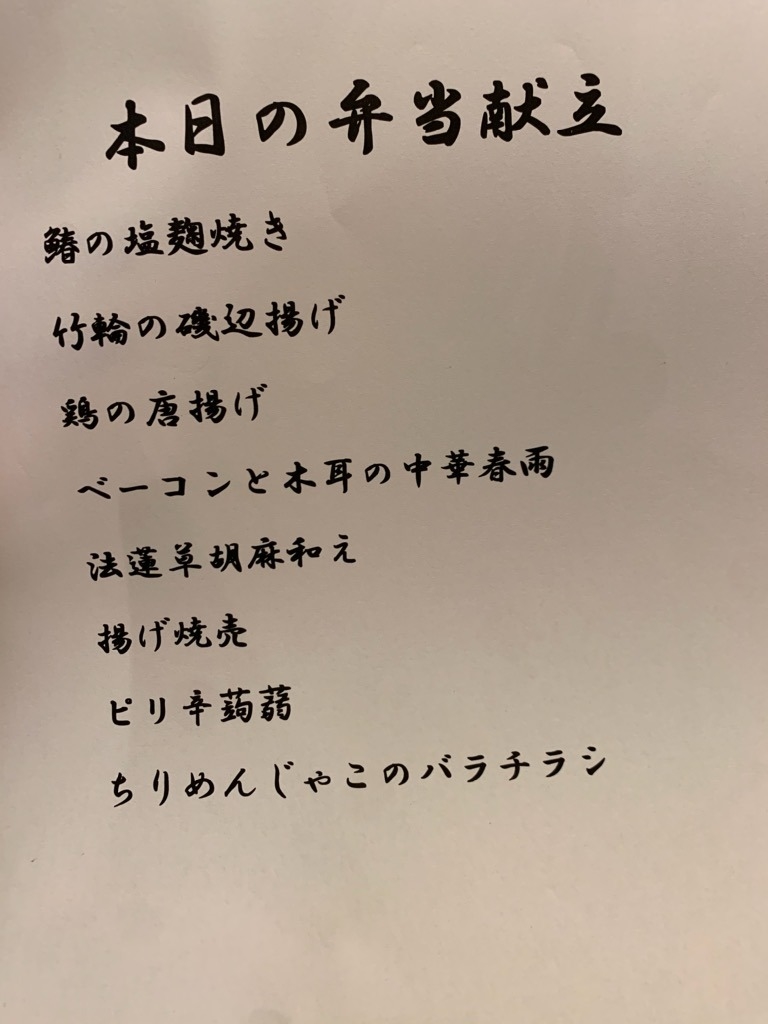 本日の弁当献立
鰆の塩麹焼き
竹輪の磯辺揚げ
鶏の唐揚げ
ベーコンと木耳の中華春雨
法蓮草胡麻和え
揚げ焼売
ピリ辛蒟蒻
ちりめんじゃこのバラチラシ